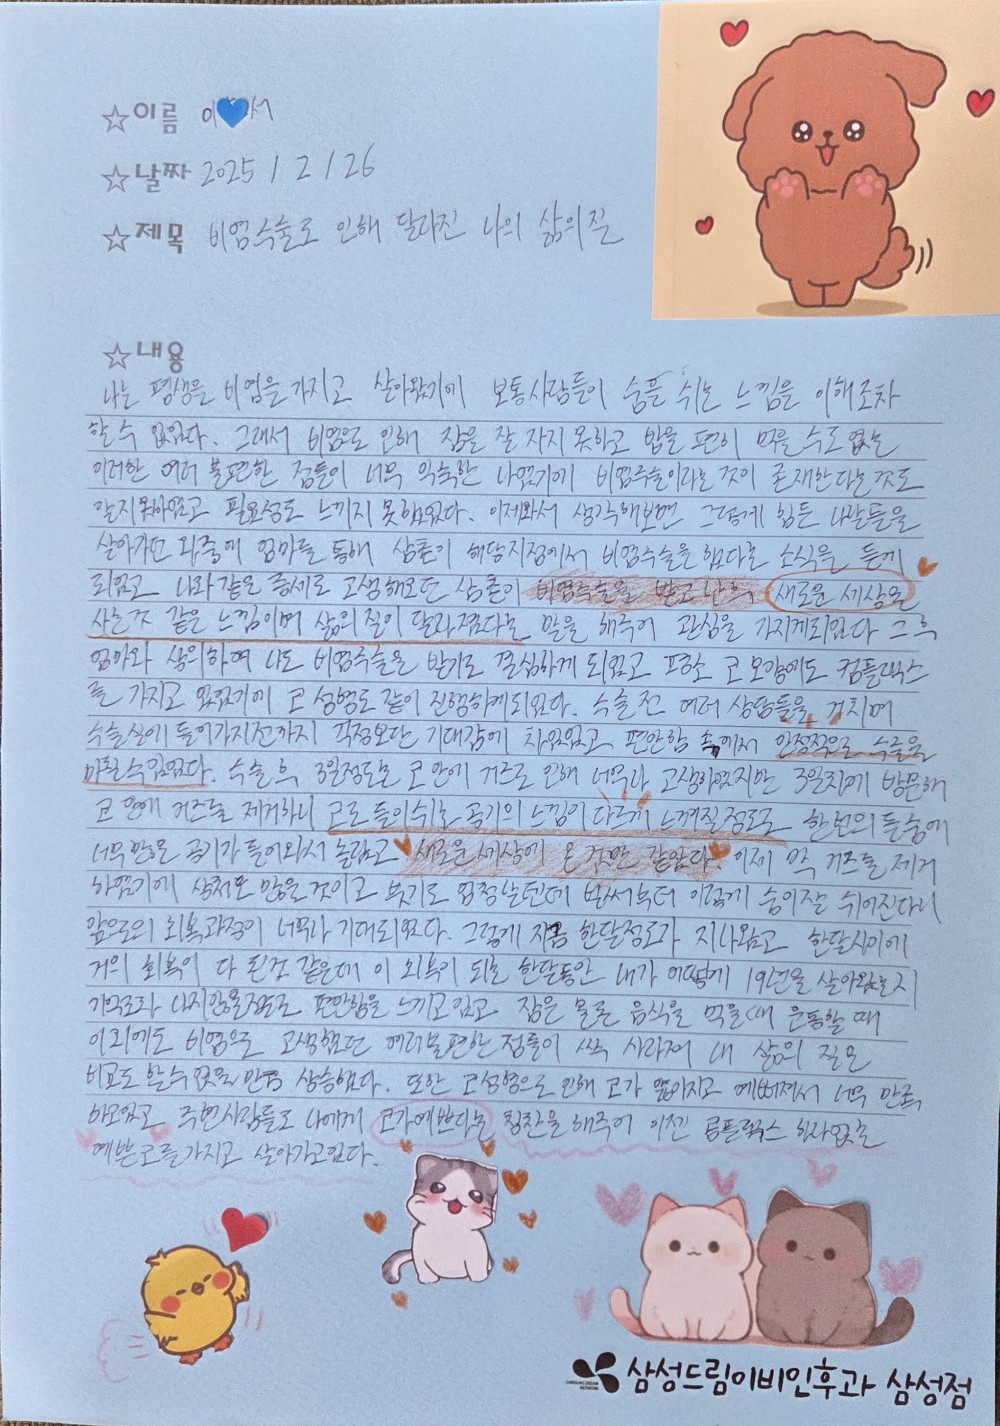 ☆이름 이💙서
☆날짜 2025 / 2 / 26
☆제목 비염수술로 인해 달라진 나의 삶의질
☆내용
나는 평생을 비염을 가지고 살아왔기에 보통사람들이 숨을 쉬는 느낌을 이해조차
할 수 없었다. 그래서 비염으로 인해 잠을 잘 자지 못하고 밥을 편히 먹을 수도 없는
이러한 여러 불편한 점들이 너무 익숙한 나였기에 비염수술이라는 것이 존재한다는 것도
알지못하였고 필요성도 느끼지 못했었다. 이제와서 생각해보면 그렇게 힘든 나날들을
살아가던 와중에 엄마를 통해 삼촌이 해당지점에서 비염수술을 했다는 소식을 듣게
되었고 나와 같은 증세로 고생해오던 삼촌이 비염수술을 받고 난 후 새로운 세상을
사는것 같은 느낌이며 삶의 질이 달라졌다는 말을 해주어 관심을 가지게되었다 그 후
엄마와 상의하여 나도 비염수술을 받기로 결심하게 되었고 평소 코 모양에도 컴플렉스
를 가지고 있었기에 코 성형도 같이 진행하게되었다. 수술 전 여러 상담들을 거치며
수술실에 들어가지전까지 걱정보다 기대감에 차있었고 편안함 속에서 안정적으로 수술을
마칠수있었다. 수술 후 3일정도는 코 안에 거즈로 인해 너무나 고생하였지만 3일차에 방문해
코 안에 거즈들 제거하니 코로 들이쉬는 공기의 느낌이 다르게 느껴질정도로 한번의 들숨에
너무 많은 공기가 들어와서 놀랐고 새로운 세상에 온 것만 같았다. 이제 막 거즈를 제거
하였기에 상처도 많을 것이고 붓기도 엄청날텐데 벌써부터 이렇게 숨이잘 쉬어진다니
앞으로의 회복과정이 너무나 기대되었다. 그렇게 지금 한달정도가 지나왔고 한달사이에
거의 회복이 다 된것 같은데 이 회복이 되는 한달동안 내가 어떻게 19년을 살아왔는지
기억조차 나지않을정도로 편안함을 느끼고있고 잠은 물론 음식을 먹을때 운동할 때
이외에도 비염으로 고생했던 여러불편한 점들이 싹 사라져 내 삶의 질은
비교도 할수 없을 만큼 상승했다. 또한 코성형으로 인해 코가 높아지고 예뻐져서 너무 만족
하고있고 주변사람들도 나에게 코가예쁘다는 칭찬을 해주어 이젠 콤플렉스 하나없는
예쁜코를가지고 살아가고있다.
삼성드림이비인후과 삼성점